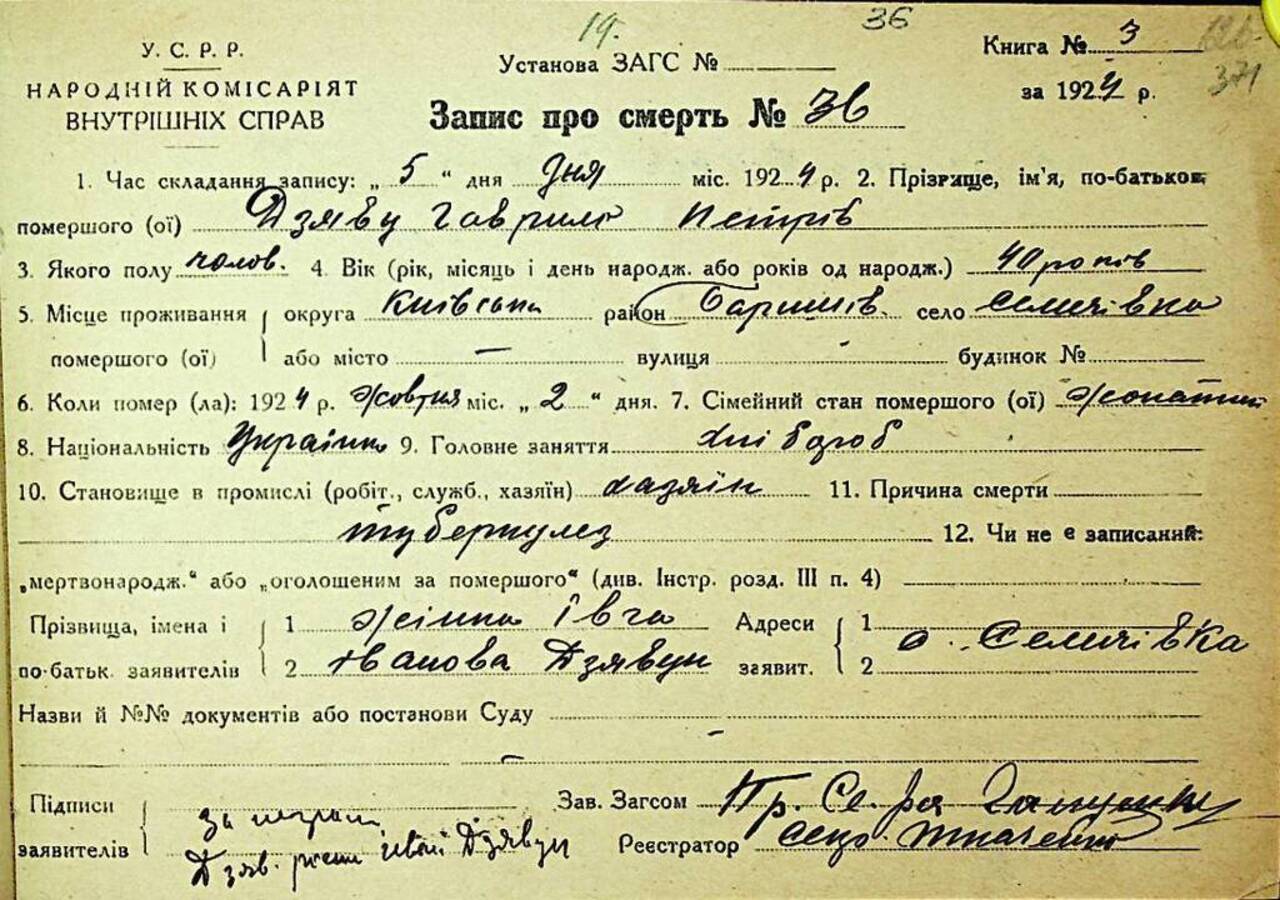 19. 36
У. С. Р. Р.
НАРОДНІЙ КОМІСАРІЯТ
ВНУТРІШНІХ СПРАВ
Установа ЗАГС №
Книга № 3
371
за 1924 р.
Запис про смерть № 36
1. Час складання запису: „ 5 “ дня дня міс. 1924 р. 2. Прізвище, ім'я, по-батькові
помершого (ої) Дзявун Гаврило Петрів
3. Якого полу чолов. 4. Вік (рік, місяць і день народж. або років од народж.) 40 років
5. Місце проживання округа Київська район Баришів. село Селичівка
помершого (ої) або місто — вулиця - будинок №
6. Коли помер (ла): 1924 р. жовтня міс. „ 2 “ дня. 7. Сімейний стан помершого (ої) жонатий
8. Національність Українець 9. Головне заняття хлібороб
10. Становище в промислі (робіт., служб., хазяїн) хазяїн 11. Причина смерти
туберкулез 12. Чи не є записаний:
„мертвонародж.“ або „оголошеним за помершого“ (див. Інстр. розд. III п. 4)
Прізвища, імена і 1 жінка Івга Адреси 1
по-батьк. заявителів 2 Іванова Дзявун заявит. 2 с. Селичівка
Назви й №№ документів або постанови Суду
Підписи Зав. Загсом
заявителів Дзявун Реєстратор Ткаченко